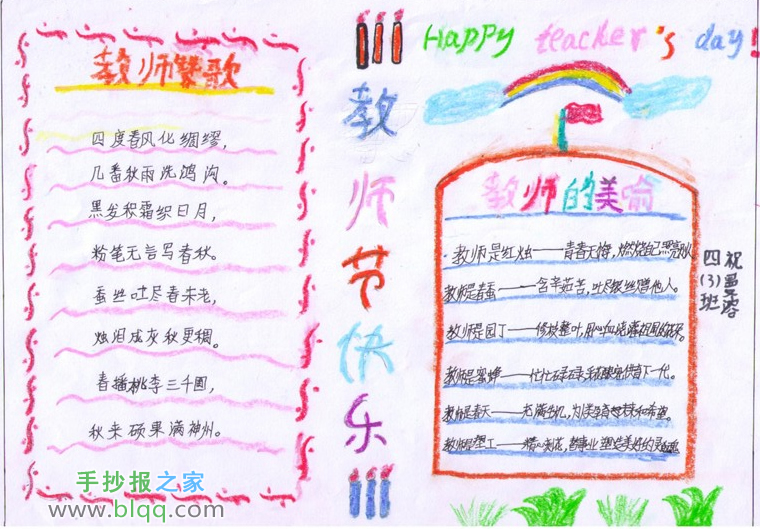 教师赞歌
四度春风化绸缪,
几番秋雨洗鸿沟。
黑发积霜织日月,
粉笔无言写春秋。
蚕丝吐尽春未老,
烛泪成灰秋更稠。
春播桃李三千圃,
秋来硕果满神州。
手抄报之家
www.blqq.com
教师节快乐
Happy teacher's day!
教师的美喻
教师是红烛——青春无悔,燃烧自己照亮别人
教师是春蚕——含辛茹苦,吐尽银丝赠他人。
教师是园丁——修枝整叶,用心血浇灌祖国的花朵。
教师是蜜蜂——忙忙碌碌,采酿蜜供育下一代。
教师是春天——充满生机,为
教师是塑工——精心制泥,塑造美好的灵魂
四(3)班
祝